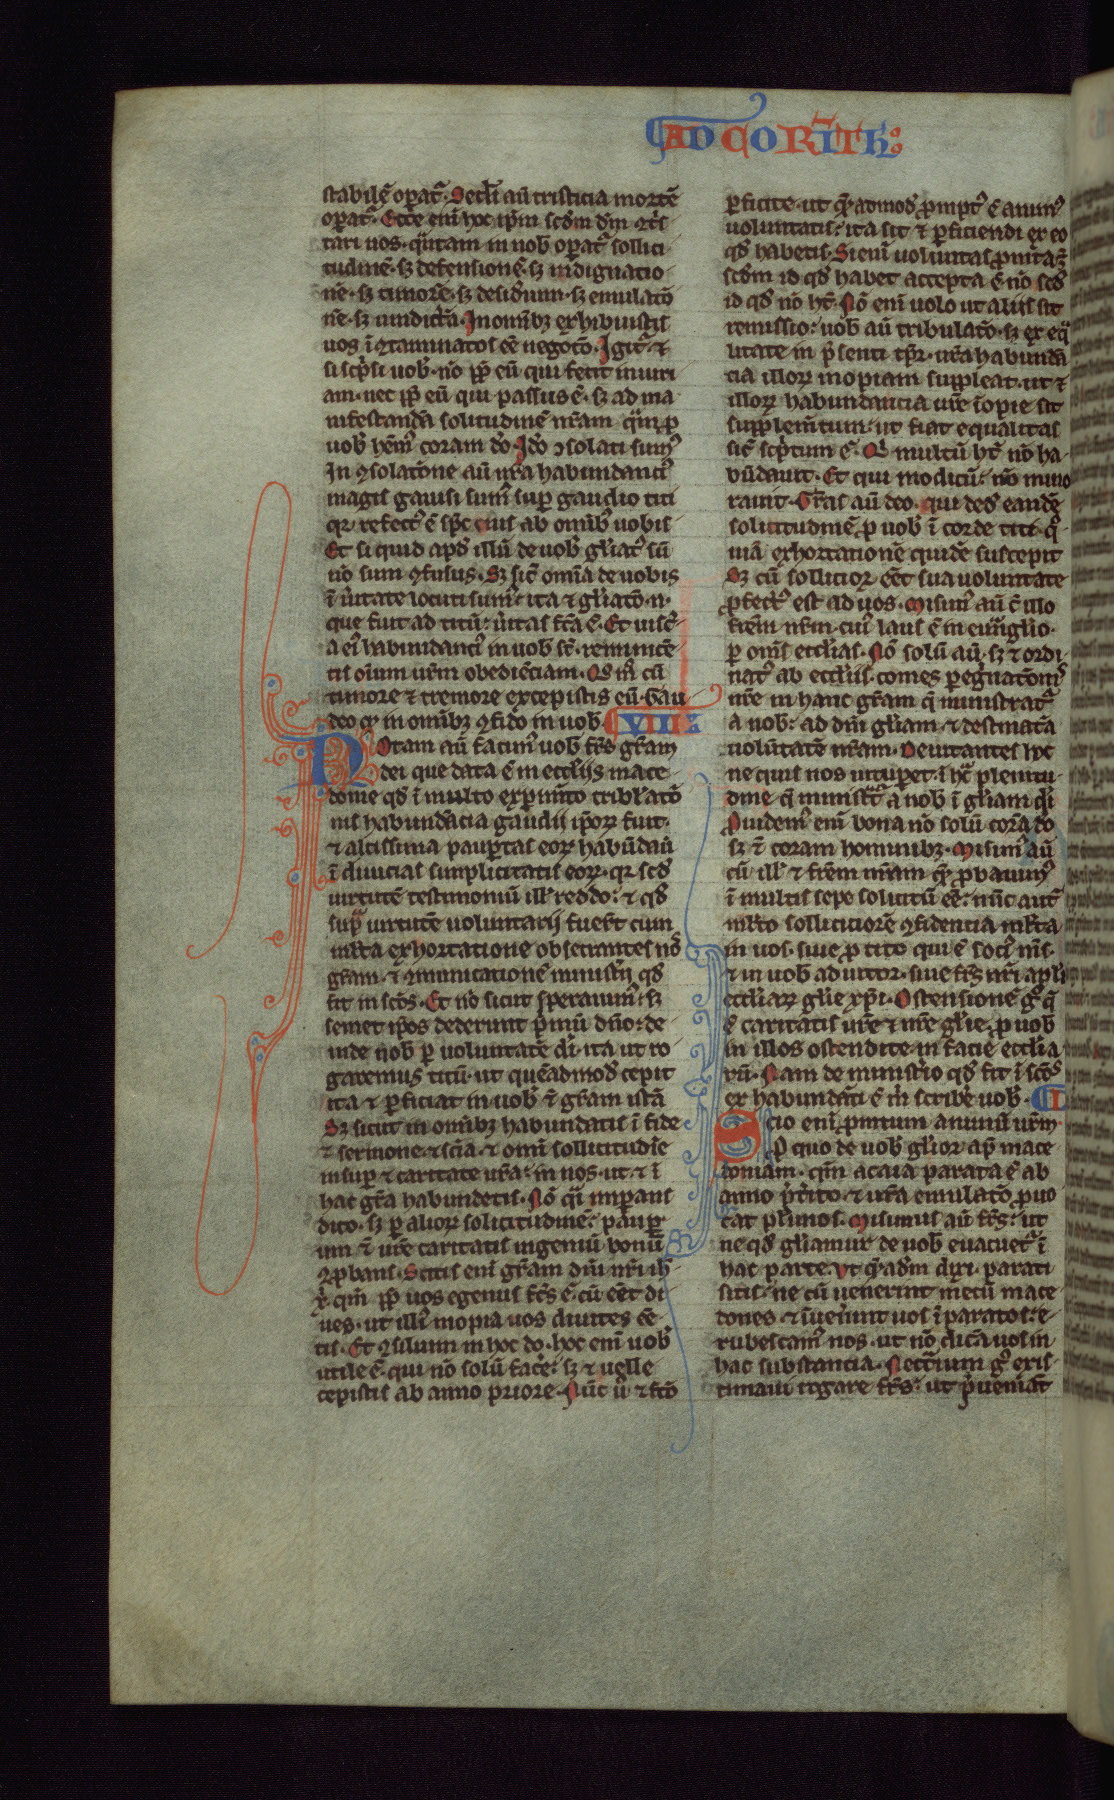 AD CORINTH:
stabilē opat᷑. Secłi aū tristicia mortē
opat᷑. Ecce eni hoc ipm scdm dm ꝯt᷑s
tari uos. q̃ntam in uob opat᷑ sollici
tudinē. sꝫ defensionē. sꝫ indignatio
nē. sꝫ timorē. sꝫ desideriū. sꝫ emulatō
nē. sꝫ uindictā. In omibꝫ exhibuistis
uos īꝯtaminatos eē negotō. Igit᷑ ⁊
si scpsi uob. nō ꝓp eū qui fecit iniuri
am. nec ꝓp eū qui passus ē. sꝫ ad ma
nifestandā solitudinē nram quā ꝓ
uob hēmꝰ coram do. Ido ꝯsolati sumꝰ
In ꝯsolatōne aū nra habundanciꝰ
magis gauisi sumꝰ sup gaudio titi
qr refectꝰ ē spc eius ab omibꝰ uobis
Et si quid apd illū de uob gliatꝰ sū
nō sum ꝯfusus. Sꝫ sic̄ omia de uobis
ī ueritate locuti sumꝰ. ita ⁊ gliatō n.
que fuit ad titū. ueritas fc̄a ē. Et uisc̄
a eiꝰ habundanciꝰ in uob st̄. reminicē
tis oium urm obediēciam. Qm̄ cū
timore ⁊ tremore excepistis eū. Gau
deo qꝫ in omibꝫ ꝯfido in uob. VIII
Notam aū facimꝰ uob frēs grām
dei que data ē in ecclijs mace
donie qd ī multo expimto tribłatō
nis habundācia gaudij ipoꝝ fuit.
⁊ altissima paupertas eoꝝ habūdau
ī diuicias simplicitatis eoꝝ. qr scd
uirtutē testimoniū illꝰ reddo: ⁊ qd
supra uirtutē uoluntarij fuert cum
mlta exhortatione obsecrantes nos
gram. ⁊ ꝯmunicationē minist̄ij qd
fit in scos. Et nō sicut sperauimꝰ. sꝫ
semet ipos dederunt p̄mū dn̄o: de
inde nob p uoluntatē di. ita ut ro
garemus titū. ut quēadmod cepit
ita ⁊ pficiat in uob ⁊ gram istā
Sꝫ sicut in omibꝫ habundatis ī fide
⁊ sermone. ⁊ sc̄ia. ⁊ omi sollicitudīe
insup ⁊ caritate ura in nos. ut ⁊ ī
hac grā habundetis. Nō q̃si impans
dico. sꝫ p alioꝝ solicitudinē: paup
im ⁊ ure caritatis ingeniū bonū
ꝯprobans. Scitis eni gram dni nri ih
x̄. qm̄ ꝓp uos egenus fc̄s ē. cū eēt di
ues. ut illiꝰ inopia uos diuites eē
tis. Et ꝯsiliūm in hoc do. hoc eni uob
utile ē. qui nō solū facere: sꝫ ⁊ uelle
cepistis ab anno priore. Nūc ū ⁊ fcō
pficite. ut q̄admod prompt̄ ē animꝰ
uoluntatis: ita sit ⁊ pficiendi ex eo
qd habetis. Si eni uoluntas promta.
scdm id qd habet accepta ē. nō scd
id qd nō ht̄. Nō eni uolo ut aliis sit
remissio: uob aū tribulatō. sꝫ ex eq̄
litate in p̄senti tpr. ura habundā
cia illoꝝ inopiam suppleat. ut ⁊
illoꝝ habundancia ure īopie sit
supplemtum: ut fiat equalitas
sic̄ scptum ē. Qi multū ht̄ nō ha
būdauit. Et qui modicū: nō mino
rauit. Gras aū deo. qui ded eandē
solicitudinē ꝓ uob ī corde titi. q̄
niā exhortationē quidē suscepit
Sꝫ cū sollicior eēt sua uoluntate
profectꝰ est ad uos. Misimꝰ aū c̄ illo
frem nrm. cuiꝰ laus ē in eunglio.
p omīs ecclias. Nō solū aū. sꝫ ⁊ ordi
natꝰ ab ecclijs. comes pegnatōnīs
nre in hanc gram q̄ ministrat᷑
a nob: ad dni gliam. ⁊ destinatā
uolūtatē nram. Deuitantes hoc
ne quis nos uituperet. ī hac plenitu
dine q̄ minist̄r a nob ī gliam di
Prouidemꝰ eni bona nō solū corā do
sꝫ ⁊ coram hominibꝫ. Misimꝰ aū
cū illꝰ ⁊ frēm nram qꝫ probauimꝰ
ī multis sepe solicitū eē: nūc aut̄
mlto solliciciorē ꝯfidencia mlta
in uos. siue ꝓ tito qui ē sociꝰ mꝰ.
⁊ in uob adiutor. siue frs nri apli
eccliaꝝ glie xpi. Ostensionē gͦ q̄
ē caritatis ure ⁊ nre glie. ꝓ uob
in illos ostendite. in facie ecclia
rū. Nam de ministerio qd fit ī scos
ex habundāti ē mi scribere uob. I
Scio eni promtum animū urm
Pro quo de uob glior ap mace
doniam. qm̄ acaia parata ē ab
anno p̄terito. ⁊ ura emulatō prouo
cat plimos. Misimus aū frs: ut
ne qd gliamur de uob euacuet᷑ ī
hac parte. Vt q̄adm dixi. parati
sitis: ne cū uenerint mecū mace
dones. ⁊ īuenerint uos īparatos: e
rubescamꝰ nos. ut nō dicā uos in
hac substancia. Necc̄rium gͦ exis
timaui rogare frs: ut p̄ueniāt